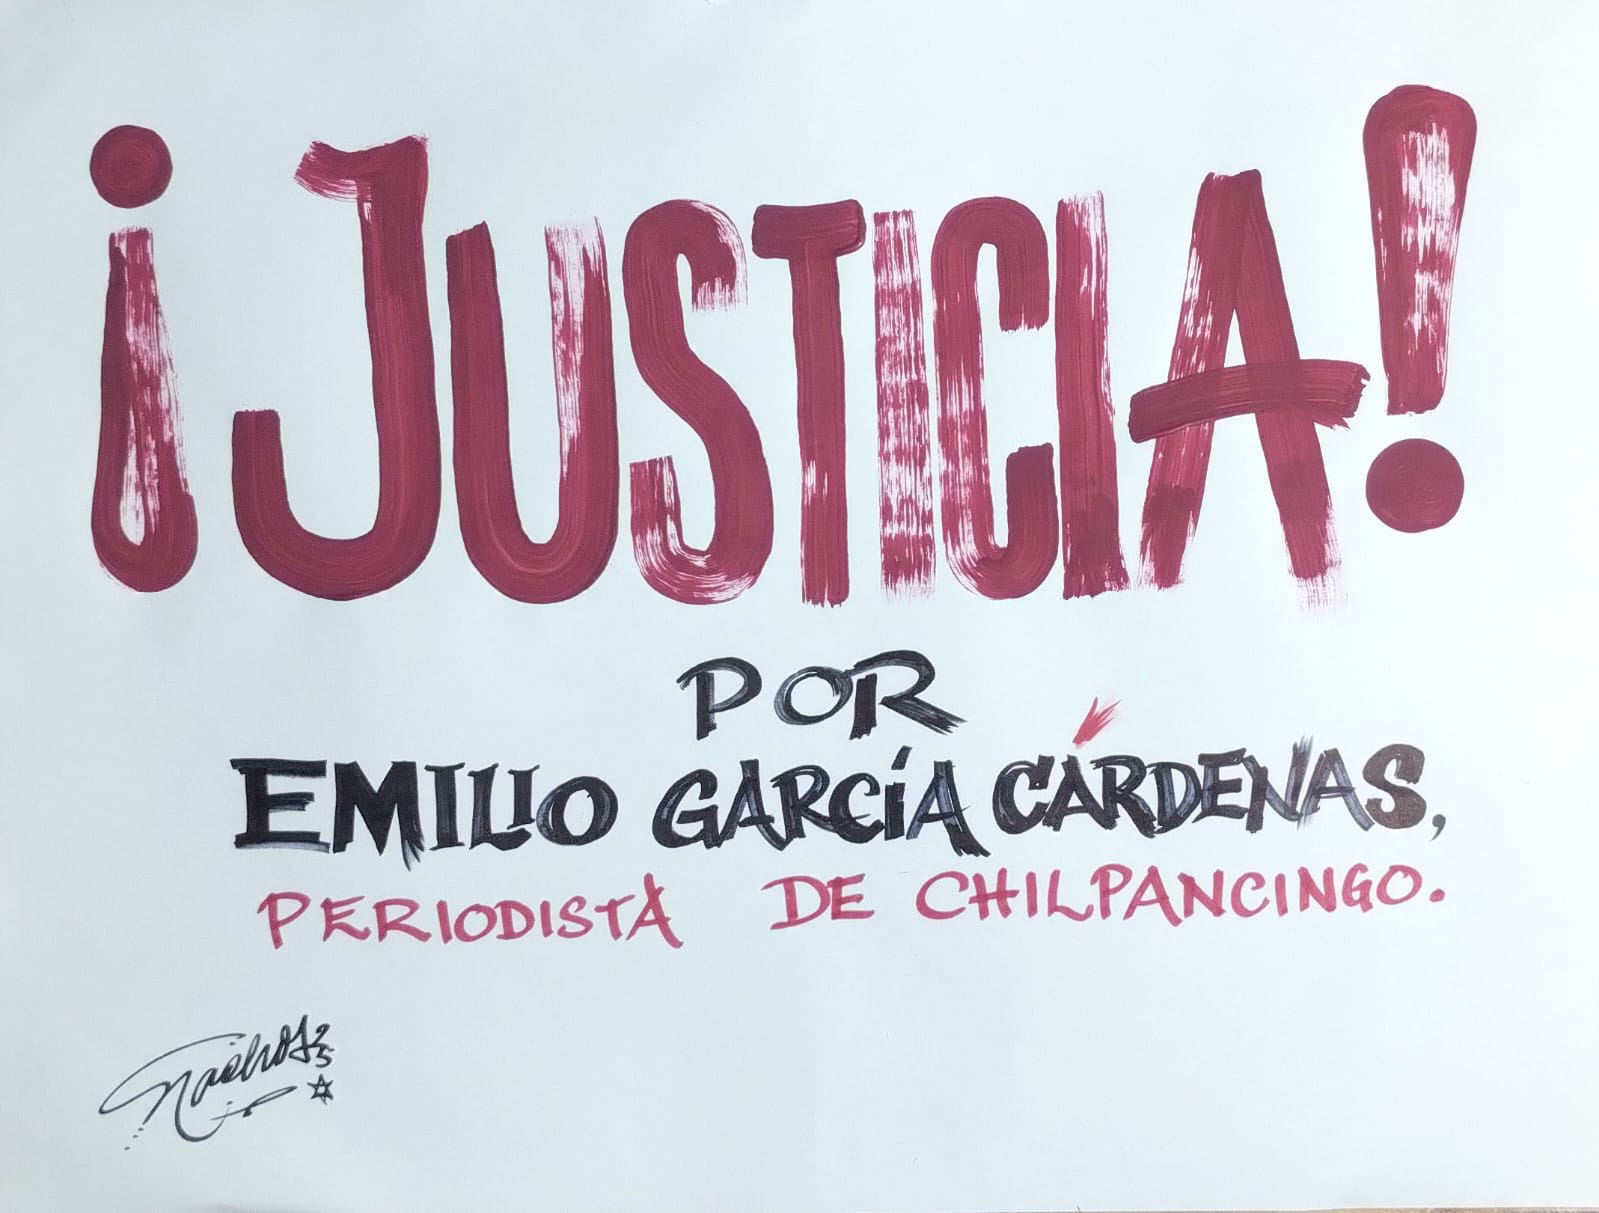 ¡JUSTICIA!
POR
EMILIO GARCÍA CÁRDENAS,
PERIODISTA DE CHILPANCINGO.
25